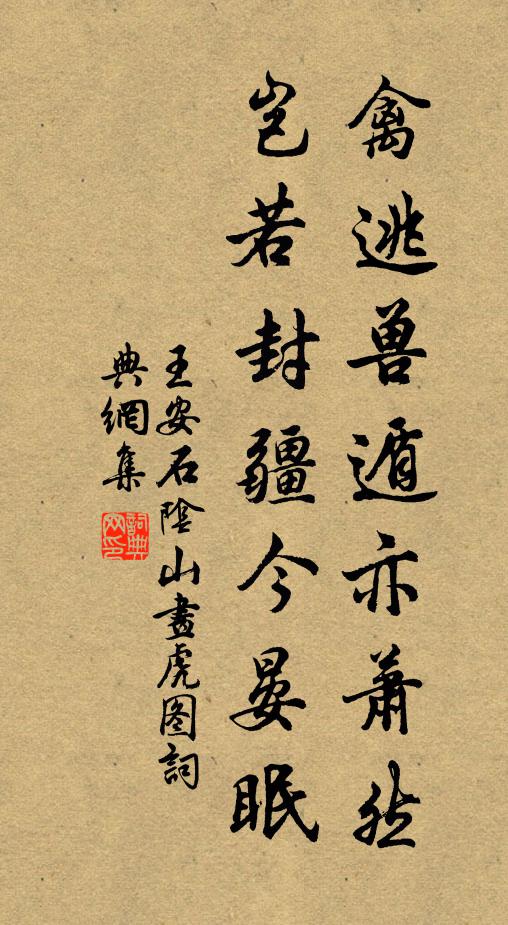 禽逃兽遁亦萧然
岂若封疆今晏眠
王安石陰山畫虎图詞
典網集
詞典网印